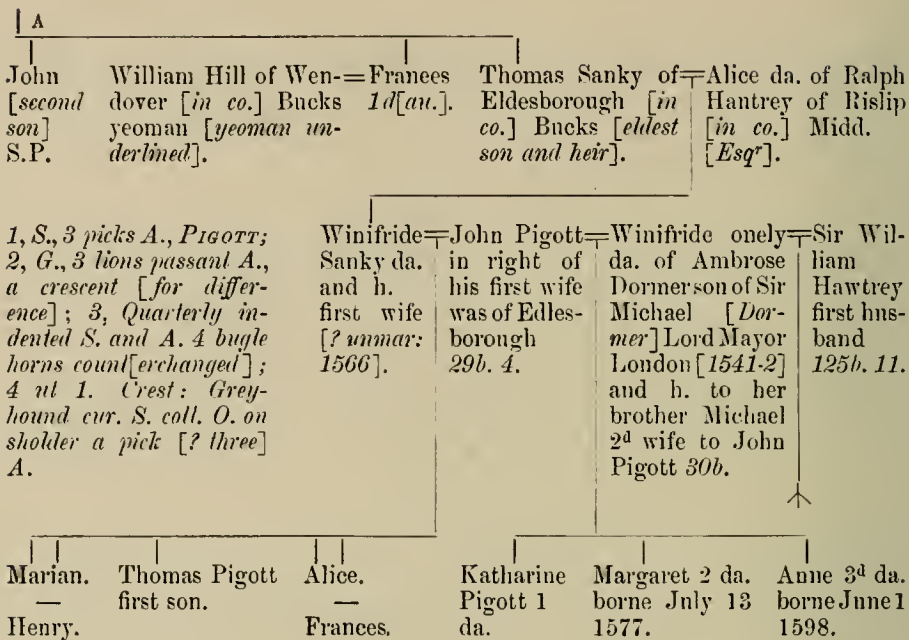 A
John
[second
son]
S.P.
William Hill of Wen-
dover [in co.] Bucks
yeoman [yeoman un-
derlined].
=Frances
1d[au.].
Thomas Sanky of
Eldesborough [in
co.] Bucks [eldest
son and heir].
=Alice da. of Ralph
Hantrey of Rislip
[in co.] Midd.
[Esqr].
1, S., 3 picks A., PIGOTT;
2, G., 3 lions passant A.,
a crescent [for differ-
ence]; 3, Quarterly in-
dented S. and A. 4 bugle
horns count[erchanged];
4 ut 1. Crest: Grey-
hound cur. S. coll. O. on
sholder a pick [? three]
A.
Winifride
Sanky da.
and h.
first wife
[? unmar:
1566].
=John Pigott
in right of
his first wife
was of Edles-
borough
29b. 4.
=Winifride onely
da. of Ambrose
Dormer son of Sir
Michael [Dor-
mer] Lord Mayor
London [1541-2]
and h. to her
brother Michael
2d wife to John
Pigott 30b.
=Sir Wil-
liam
Hawtrey
first hus-
band
125b. 11.
Marian.
—
Henry.
Thomas Pigott
first son.
Alice.
—
Frances.
Katharine
Pigott 1
da.
Margaret 2 da.
borne July 13
1577.
Anne 3d da.
borne June 1
1598.